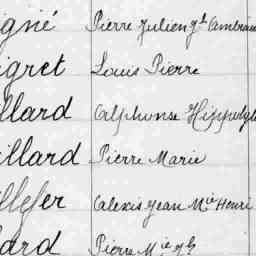 igné Pierre Julien Jh Ambroise
igret Louis Pierre
llard Alphonse Hippolyte
illard Pierre Marie
llefer Alexis Jean Mie Henri
lard Pierre Mie Jh